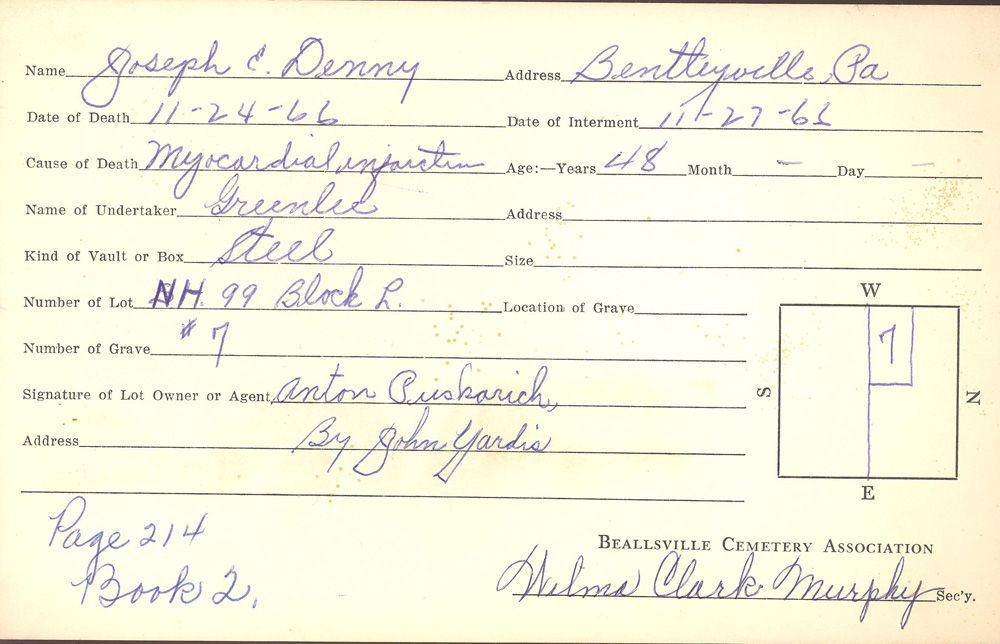 Name Joseph E. Denny Address Bentleyville, Pa
Date of Death 11-24-66 Date of Interment 11-27-66
Cause of Death Myocardial infarction Age:—Years 48 Month — Day —
Name of Undertaker Greenlee Address
Kind of Vault or Box Steel Size
Number of Lot NH. 99 Block L. Location of Grave
Number of Grave #7
Signature of Lot Owner or Agent Anton Puskarich,
Address By John Yardis
W
7
S
N
E
Page 214
Book 2.
BEALLSVILLE CEMETERY ASSOCIATION
Wilma Clark Murphy Sec'y.